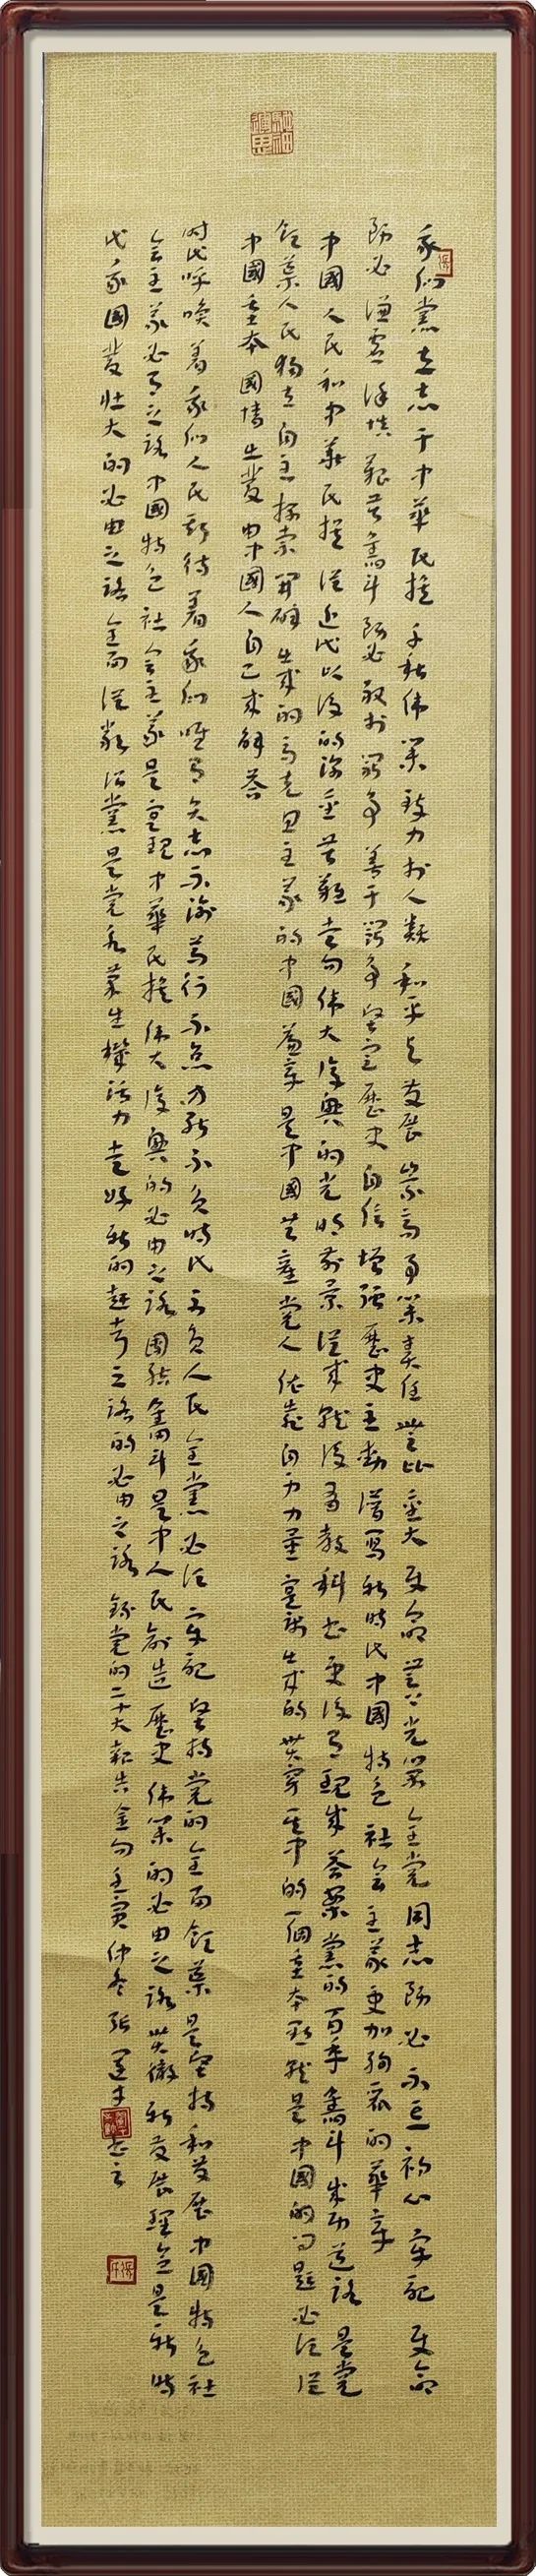 我们党立志于中华民族千秋伟业致力于人类和平与发展崇高事业责任无比重大使命无上光荣全党同志务必不忘初心牢记使命
务必谦虚谨慎艰苦奋斗务必敢于斗争善于斗争坚定历史自信增强历史主动谱写新时代中国特色社会主义更加绚丽的华章
中國人民和中華民族從近代以後的深重苦難走向伟大復興的光明前景從來就沒有教科书更沒有現成答案黨的百年奮斗成功道路是党
領導人民獨立自主探索開辟出來的馬克思主義的中國篇章是中國共產党人依靠自身力量實践出來的貫穿其中的一個基本點就是中國的问題必須從
中國基本國情出發由中國人自己來解答
时代呼唤着我们人民期待着我们唯有矢志不渝笃行不怠方能不負時代不負人民全黨必須牢記堅持党的全面領導是堅持和發展中國特色社
会主義必由之路中國特色社会主義是實現中華民族偉大復興的必由之路團結奮斗是中人民創造歷史偉業的必由之路貫徹新發展理念是新時
代我國發壮大的必由之路全面從嚴治黨是党永葆生機活力走好新的赶考之路的必由之路 錄党的二十大報告金句壬寅仲冬張運 书之